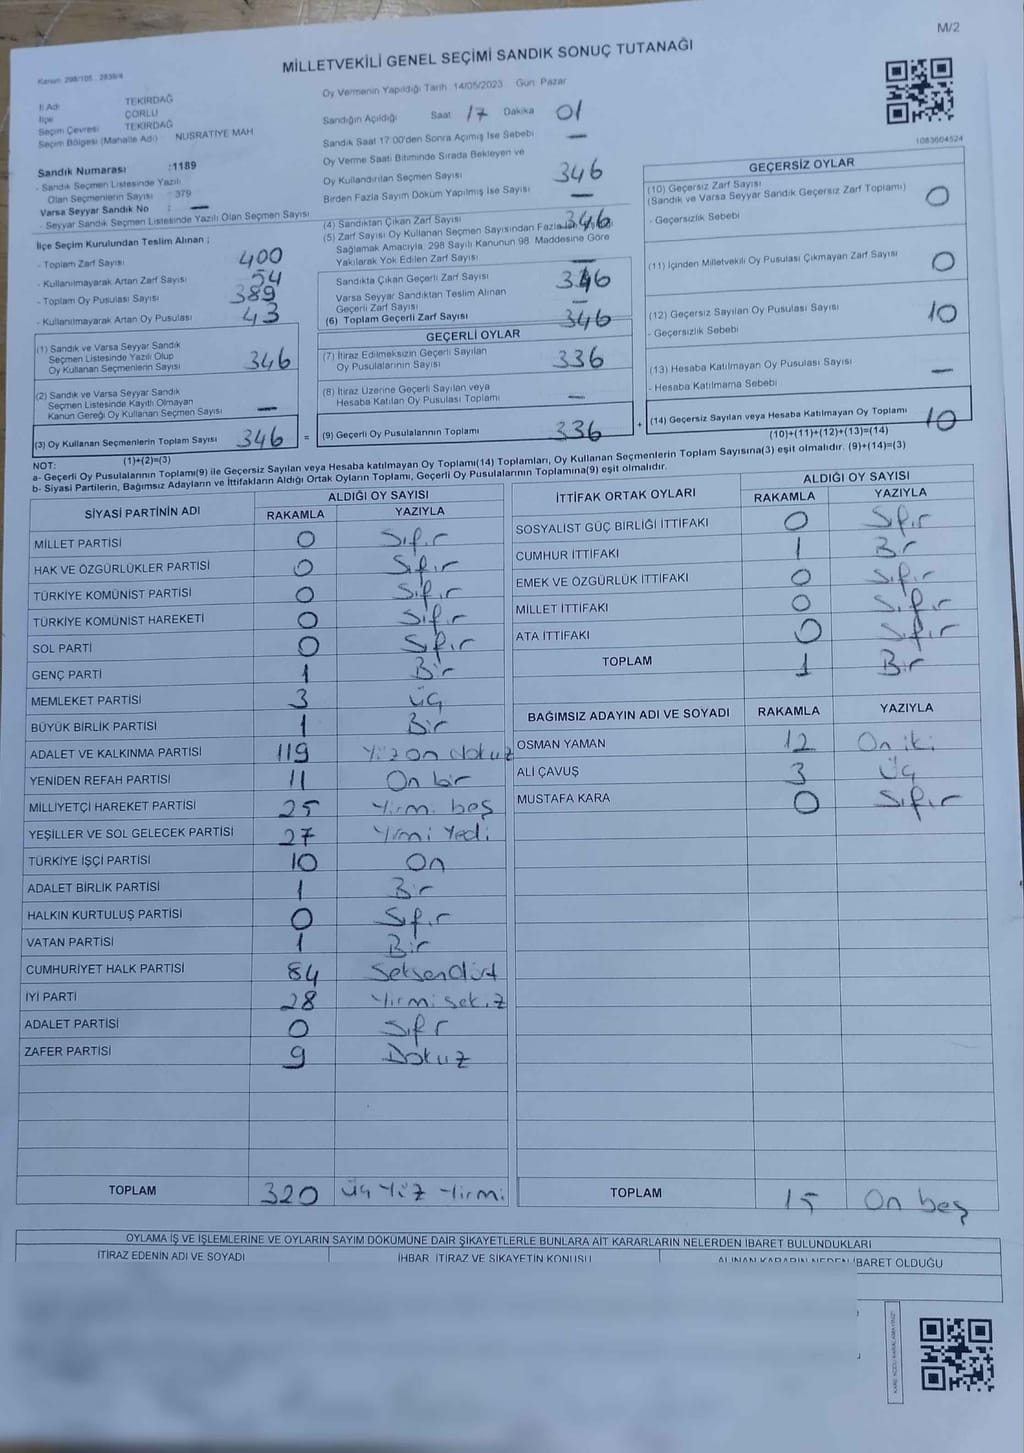 M/2
MİLLETVEKİLİ GENEL SEÇİMİ SANDIK SONUÇ TUTANAĞI
Kanun: 298/105 , 2839/4
İl Adı TEKİRDAĞ
İlçe ÇORLU
Seçim Çevresi TEKİRDAĞ
Seçim Bölgesi (Mahalle Adı) NUSRATİYE MAH
Sandık Numarası :1189
- Sandık Seçmen Listesinde Yazılı
Olan Seçmenlerin Sayısı : 379
Varsa Seyyar Sandık No : —
- Seyyar Sandık Seçmen Listesinde Yazılı Olan Seçmen Sayısı
İlçe Seçim Kurulundan Teslim Alınan ;
- Toplam Zarf Sayısı 400
- Kullanılmayarak Artan Zarf Sayısı 54
- Toplam Oy Pusulası Sayısı 389
- Kullanılmayarak Artan Oy Pusulası 43
(1) Sandık ve Varsa Seyyar Sandık
Seçmen Listesinde Yazılı Olup
Oy Kullanan Seçmenlerin Sayısı 346
(2) Sandık ve Varsa Seyyar Sandık
Seçmen Listesinde Kayıtlı Olmayan
Kanun Gereği Oy Kullanan Seçmen Sayısı —
(3) Oy Kullanan Seçmenlerin Toplam Sayısı 346 =
(1)+(2)=(3)
Oy Vermenin Yapıldığı Tarih :14/05/2023 Gün: Pazar
Sandığın Açıldığı Saat 17 Dakika 01
Sandık Saat 17:00'den Sonra Açılmış İse Sebebi —
Oy Verme Saati Bitiminde Sırada Bekleyen ve
Oy Kullandırılan Seçmen Sayısı 346
Birden Fazla Sayım Döküm Yapılmış İse Sayısı —
(4) Sandıktan Çıkan Zarf Sayısı 346
(5) Zarf Sayısı Oy Kullanan Seçmen Sayısından Fazla
Sağlamak Amacıyla, 298 Sayılı Kanunun 98. Maddesine Göre
Yakılarak Yok Edilen Zarf Sayısı —
Sandıkta Çıkan Geçerli Zarf Sayısı 346
Varsa Seyyar Sandıktan Teslim Alınan
Geçerli Zarf Sayısı —
(6) Toplam Geçerli Zarf Sayısı 346
GEÇERLİ OYLAR
(7) İtiraz Edilmeksizin Geçerli Sayılan
Oy Pusulalarının Sayısı 336
(8) İtiraz Üzerine Geçerli Sayılan veya
Hesaba Katılan Oy Pusulası Toplamı —
(9) Geçerli Oy Pusulalarının Toplamı 336 +
1083604524
GEÇERSİZ OYLAR
(10) Geçersiz Zarf Sayısı
(Sandık ve Varsa Seyyar Sandık Geçersiz Zarf Toplamı) 0
- Geçersizlik Sebebi
(11) İçinden Milletvekili Oy Pusulası Çıkmayan Zarf Sayısı 0
(12) Geçersiz Sayılan Oy Pusulası Sayısı 10
- Geçersizlik Sebebi
(13) Hesaba Katılmayan Oy Pusulası Sayısı —
- Hesaba Katılmama Sebebi
(14) Geçersiz Sayılan veya Hesaba Katılmayan Oy Toplamı 10
(10)+(11)+(12)+(13)=(14)
NOT:
a- Geçerli Oy Pusulalarının Toplamı(9) ile Geçersiz Sayılan veya Hesaba katılmayan Oy Toplamı(14) Toplamları, Oy Kullanan Seçmenlerin Toplam Sayısına(3) eşit olmalıdır. (9)+(14)=(3)
b- Siyasi Partilerin, Bağımsız Adayların ve İttifakların Aldığı Ortak Oyların Toplamı, Geçerli Oy Pusulalarının Toplamına(9) eşit olmalıdır.
SİYASİ PARTİNİN ADI ALDIĞI OY SAYISI
RAKAMLA YAZIYLA
MİLLET PARTİSİ 0 Sıfır
HAK VE ÖZGÜRLÜKLER PARTİSİ 0 Sıfır
TÜRKİYE KOMÜNİST PARTİSİ 0 Sıfır
TÜRKİYE KOMÜNİST HAREKETİ 0 Sıfır
SOL PARTİ 0 Sıfır
GENÇ PARTİ 1 Bir
MEMLEKET PARTİSİ 3 üç
BÜYÜK BİRLİK PARTİSİ 1 Bir
ADALET VE KALKINMA PARTİSİ 119 Yüz on dokuz
YENİDEN REFAH PARTİSİ 11 On bir
MİLLİYETÇİ HAREKET PARTİSİ 25 Yirmi beş
YEŞİLLER VE SOL GELECEK PARTİSİ 27 Yirmi Yedi
TÜRKİYE İŞÇİ PARTİSİ 10 On
ADALET BİRLİK PARTİSİ 1 Bir
HALKIN KURTULUŞ PARTİSİ 0 Sıfır
VATAN PARTİSİ 1 Bir
CUMHURİYET HALK PARTİSİ 84 Seksendört
İYİ PARTİ 28 Yirmi sekiz
ADALET PARTİSİ 0 Sıfır
ZAFER PARTİSİ 9 Dokuz
TOPLAM 320 üç Yüz Yirmi
İTTİFAK ORTAK OYLARI ALDIĞI OY SAYISI
RAKAMLA YAZIYLA
SOSYALİST GÜÇ BİRLİĞİ İTTİFAKI 0 Sıfır
CUMHUR İTTİFAKI 1 Bir
EMEK VE ÖZGÜRLÜK İTTİFAKI 0 Sıfır
MİLLET İTTİFAKI 0 Sıfır
ATA İTTİFAKI 0 Sıfır
TOPLAM 1 Bir
BAĞIMSIZ ADAYIN ADI VE SOYADI RAKAMLA YAZIYLA
OSMAN YAMAN 12 On iki
ALİ ÇAVUŞ 3 üç
MUSTAFA KARA 0 Sıfır
TOPLAM 15 On beş
OYLAMA İŞ VE İŞLEMLERİNE VE OYLARIN SAYIM DÖKÜMÜNE DAİR ŞİKAYETLERLE BUNLARA AİT KARARLARIN NELERDEN İBARET BULUNDUKLARI
İTİRAZ EDENİN ADI VE SOYADI İHBAR, İTİRAZ VE ŞİKAYETİN KONUSU ALINAN KARARIN NEDEN İBARET OLDUĞU